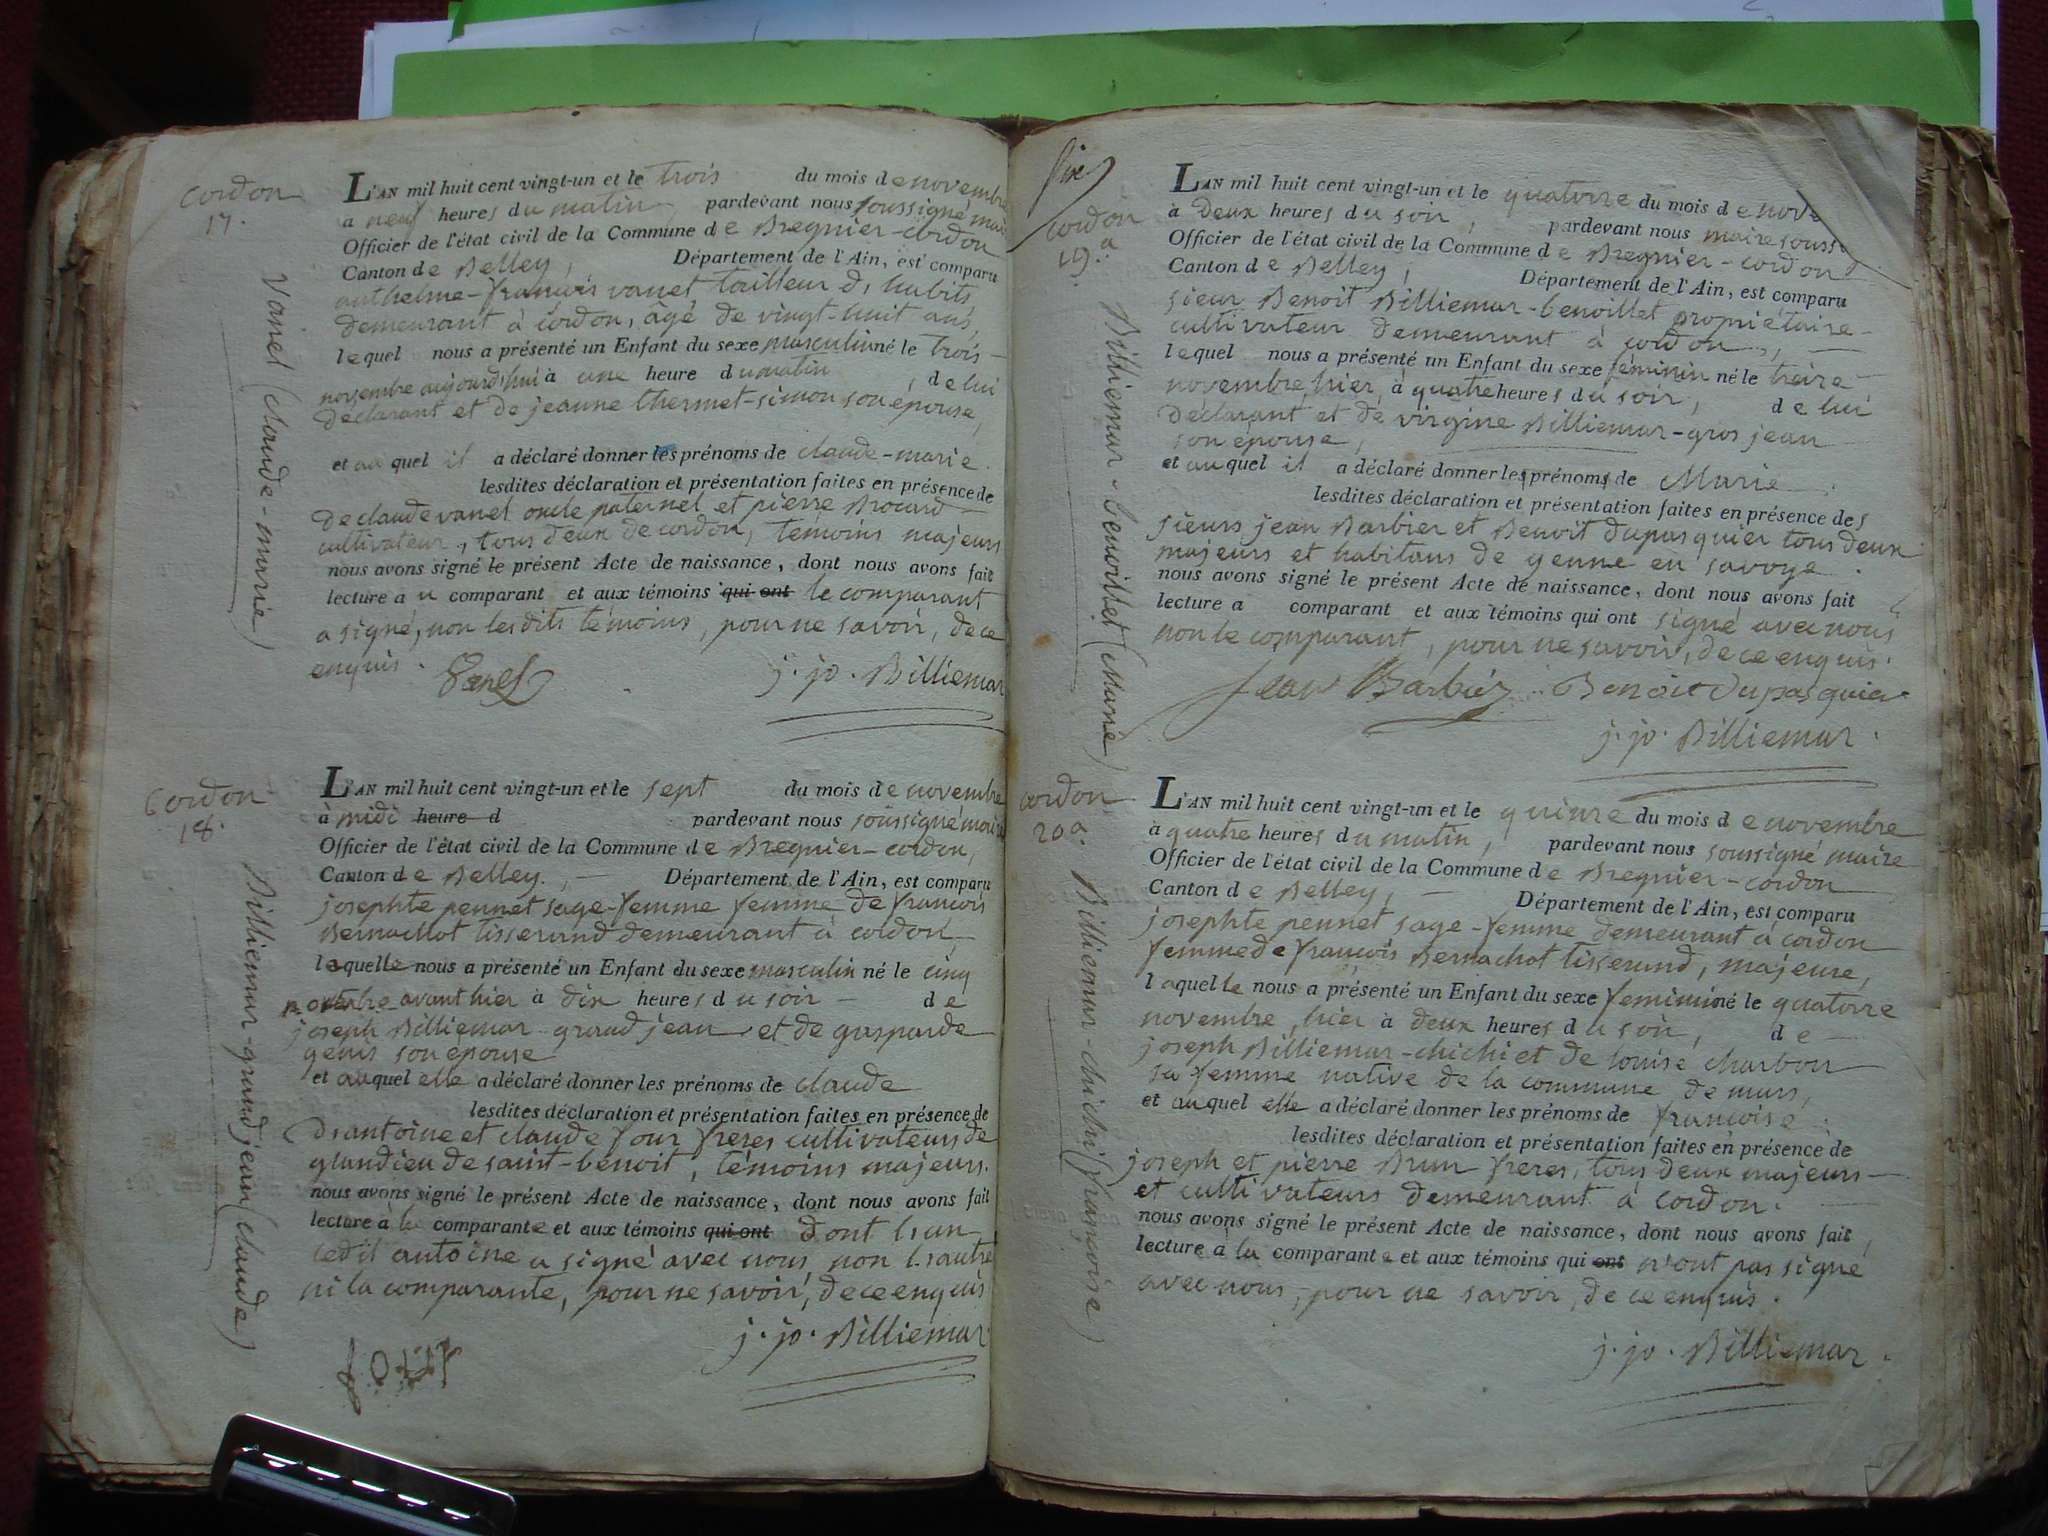 Cordon
17.
Vanel (Claude-marie)
L'AN mil huit cent vingt-un et le trois du mois de novembre
à neuf heures du matin pardevant nous soussigné mai
Officier de l'état civil de la Commune de Bregnier-cordon
Canton de Belley, Département de l'Ain, est comparu
anthelme-francois vanel tailleur d, habits
demeurant à cordon, agé de vingt-huit ans,
lequel nous a présenté un Enfant du sexe masculin né le trois
novembre aujourd'hui à une heure du matin, de lui
déclarant et de jeanne thermet-simon son épouse,
et au quel il a déclaré donner les prénoms de claude-marie.
lesdites déclaration et présentation faites en présence de
de claude vanel oncle paternel et pierre Brocard
cultivateur, tous deux de cordon, témoins majeurs
nous avons signé le présent Acte de naissance, dont nous avons fait
lecture au comparant et aux témoins qui ont le comparant
a signé, non lesdits témoins, pour ne savoir, de ce
enquis.
Vanel j. jo. Billiemar
Cordon
18.
Billiemar-grand jean (claude)
L'AN mil huit cent vingt-un et le sept du mois de novembre
à midi heure d pardevant nous soussigné maire
Officier de l'état civil de la Commune de Bregnier-cordon,
Canton de Belley, Département de l'Ain, est comparu
josephte pennet sage-femme femme de francois
Bernachot tisserand demeurant à cordon
laquelle nous a présenté un Enfant du sexe masculin né le cinq
novembre avant hier à dix heures du soir de
joseph Billiemar-grand jean et de gasparde
genis son épouse
et auquel elle a déclaré donner les prénoms de claude
lesdites déclaration et présentation faites en présence de
d'antoine et claude four freres cultivateurs de
glandieu de saint-benoit, témoins majeurs.
nous avons signé le présent Acte de naissance, dont nous avons fait
lecture à la comparante et aux témoins qui ont dont l'un
ledit antoine a signé avec nous non l'autre
ni la comparante, pour ne savoir, de ce enquis
j. jo. Billiemar
four
Cordon
19.
Billiemar-benoillet (Marie)
L'AN mil huit cent vingt-un et le quatorze du mois de nove
à deux heures du soir, pardevant nous maire souss
Officier de l'état civil de la Commune de Bregnier-cordon
Canton de Belley, Département de l'Ain, est comparu
sieur Benoit Billiemar-benoillet propriétaire
cultivateur demeurant à cordon,
lequel nous a présenté un Enfant du sexe féminin né le treize
novembre, hier, à quatre heures du soir, de lui
déclarant et de virginie Billiemar-gros jean
son épouse,
et auquel il a déclaré donner les prénoms de Marie.
lesdites déclaration et présentation faites en présence des
sieurs jean Barbier et Benoit dupasquier tous deux
majeurs et habitans de yenne en savoye.
nous avons signé le présent Acte de naissance, dont nous avons fait
lecture a comparant et aux témoins qui ont signé avec nous
non le comparant, pour ne savoir, de ce enquis.
Jean Barbier Benoit Dupasquier
j. jo. Billiemar.
Cordon
20.
Billiemar-chichi (françoise)
L'AN mil huit cent vingt-un et le quinze du mois de novembre
à quatre heures du matin, pardevant nous soussigné maire
Officier de l'état civil de la Commune de Bregnier-cordon
Canton de Belley, Département de l'Ain, est comparu
josephte pennet sage-femme demeurant à cordon
femme de françois Bernachot tisserand, majeure,
laquelle nous a présenté un Enfant du sexe feminin né le quatorze
novembre, hier à deux heures du soir, de
joseph Billiemar-chichi et de louise charbon
sa femme native de la commune de murs,
et auquel elle a déclaré donner les prénoms de francoise.
lesdites déclaration et présentation faites en présence de
joseph et pierre Brun freres, tous deux majeurs
et cultivateurs demeurant à cordon.
nous avons signé le présent Acte de naissance, dont nous avons fait
lecture à la comparante et aux témoins qui ont n'ont pas signé
avec nous, pour ne savoir, de ce enquis.
j. jo. Billiemar.